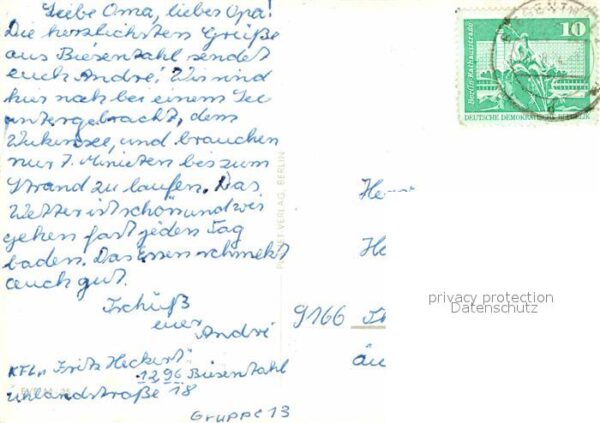 Liebe Oma, lieber Opa!
Die herzlichsten Grüße
aus Biesentahl sendet
euch André! Wir sind
hier nah bei einem See
untergebracht, dem
Wukensee, und brauchen
nur 7. Minieten bes zum
Strand zu laufen. Das
Wetter ist schön und wir
gehen fast jeden Tag
baden. Das Essen schmekt
auch gut.
Tschüß
euer
André
KFL "Fritz Heckert"
1296 Biesentahl
Uhlandstraße 18
Gruppe 13
VERLAG, BERLIN
10
Berlin-Rathausstraße
DEUTSCHE DEMOKRATISCHE REPUBLIK
9166
privacy protection
Datenschutz